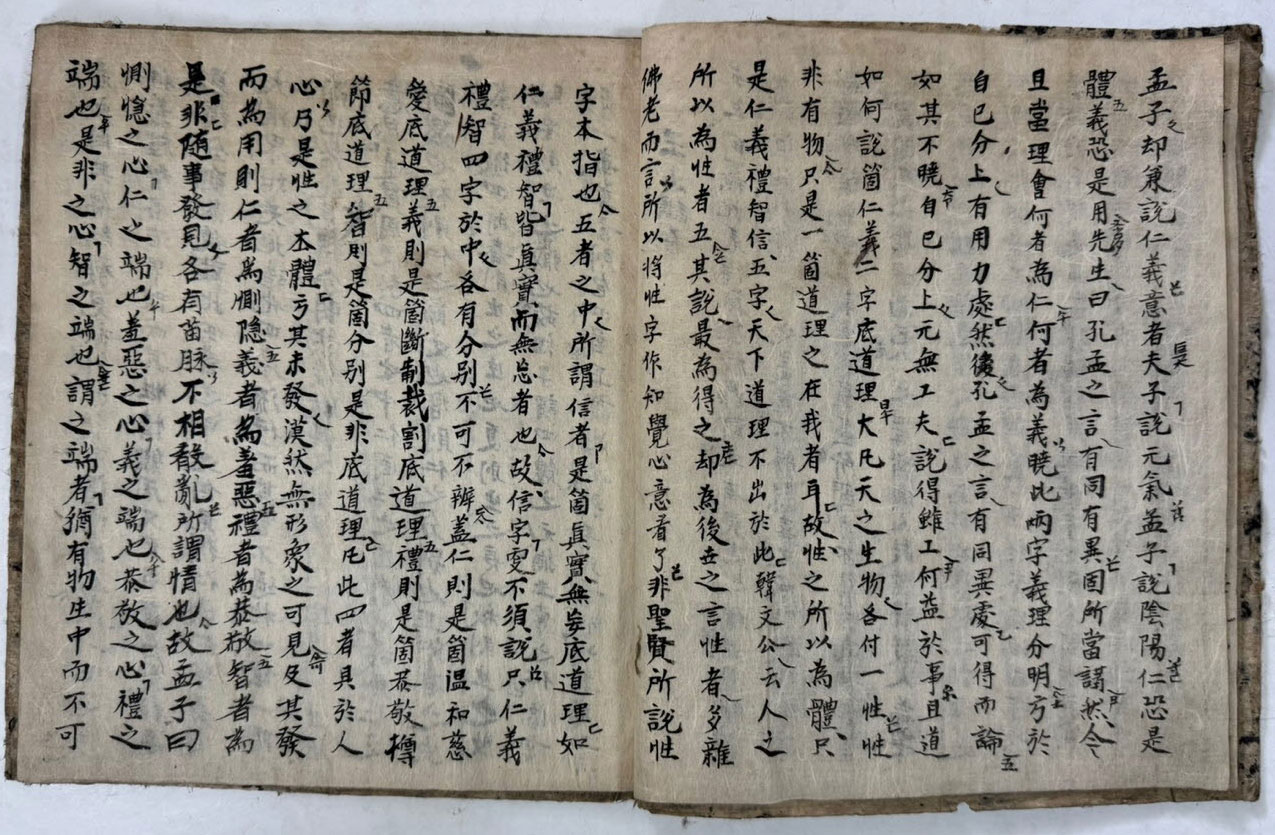 孟子却兼說仁義意者夫子說元氣孟子說陰陽仁恐是
體義恐是用先生曰孔孟之言有同有異固所當講然今
且當理會何者為仁何者為義曉此兩字義理分明方於
自己分上有用力處然後孔孟之言有同異處可得而論
如其不曉自己分上元無工夫說得雖工何益於事且道
如何說箇仁義二字底道理大凡天之生物各付一性性
非有物只是一箇道理之在我者耳故性之所以為體只
是仁義禮智信五字天下道理不出於此韓文公云人之
所以為性者五其說最為得之却為後世之言性者多雜
佛老而言所以將性字作知覺心意看了非聖賢所說性
字本指也五者之中所謂信者是箇眞實無妄底道理如
仁義禮智皆眞實而無妄者也故信字更不須說只仁義
禮智四字於中各有分别不可不辨盖仁則是箇溫和慈
愛底道理義則是箇斷制裁割底道理禮則是箇恭敬撙
節底道理智則是箇分别是非底道理凡此四者具於人
心乃是性之本體方其未發漠然無形象之可見及其發
而為用則仁者為惻隐義者為羞惡禮者為恭敬智者為
是非随事發見各有苗脉不相殽亂所謂情也故孟子曰
惻隐之心仁之端也羞惡之心義之端也恭敬之心禮之
端也是非之心智之端也謂之端者猶有物生中而不可